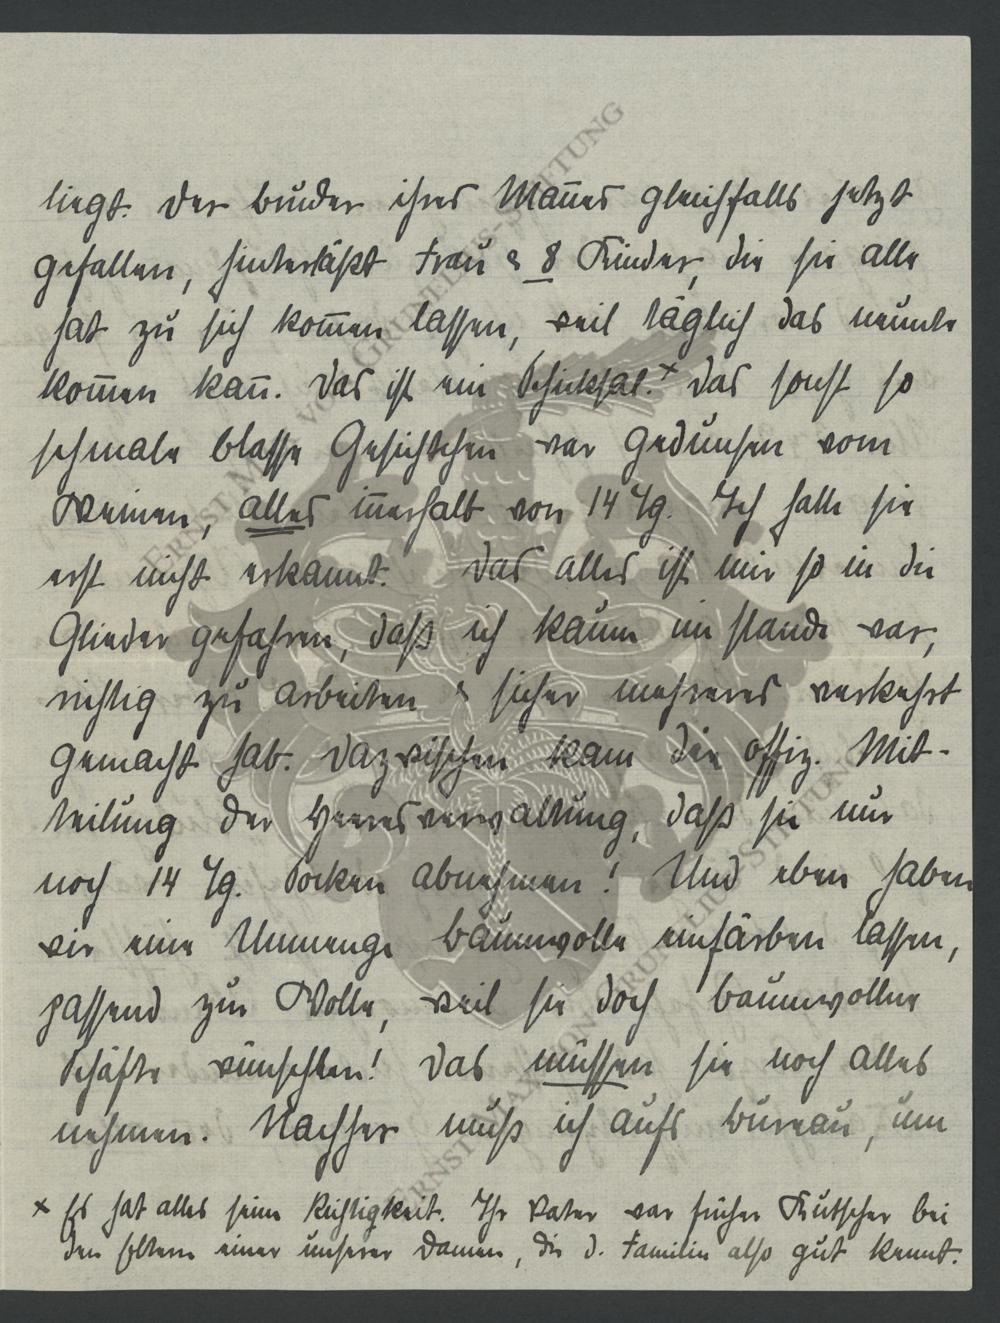 liegt. Der Bruder ihres Mañes gleichfalls jetzt
gefallen, hinterläßt Frau & 8 Kinder, die sie alle
hat zu sich kom̄en lassen, weil täglich das neunte
kom̄en kan̄. Das ist ein Schicksal.x Das sonst so
schmale blasse Gesichtchen war gedunsen vom
Weinen, alles in̄erhalb von 14 Tg. Ich hatte sie
erst nicht erkannt. Das alles ist mir so in die
Glieder gefahren, daß ich kaum im stande war,
richtig zu arbeiten & sicher mehreres verkehrt
gemacht hab. Dazwischen kam die offiz. Mit-
teilung der Heeresverwaltung, daß sie nur
noch 14 Tg. Socken abnehmen! Und eben haben
wir eine Unmenge Baumwolle einfärben lassen,
passend zur Wolle, weil sie doch baumwollne
Schäfte wünschten! Das müssen sie noch alles
nehmen. Nachher muß ich aufs Bureau, um
x Es hat alles seine Richtigkeit. Ihr Vater war früher Kutscher bei
den Eltern einer unserer Damen, die d. Familie also gut kennt.
ERNST MAX VON GRUNELIUS-STIFTUNG
ERNST MAX VON GRUNELIUS-STIFTUNG